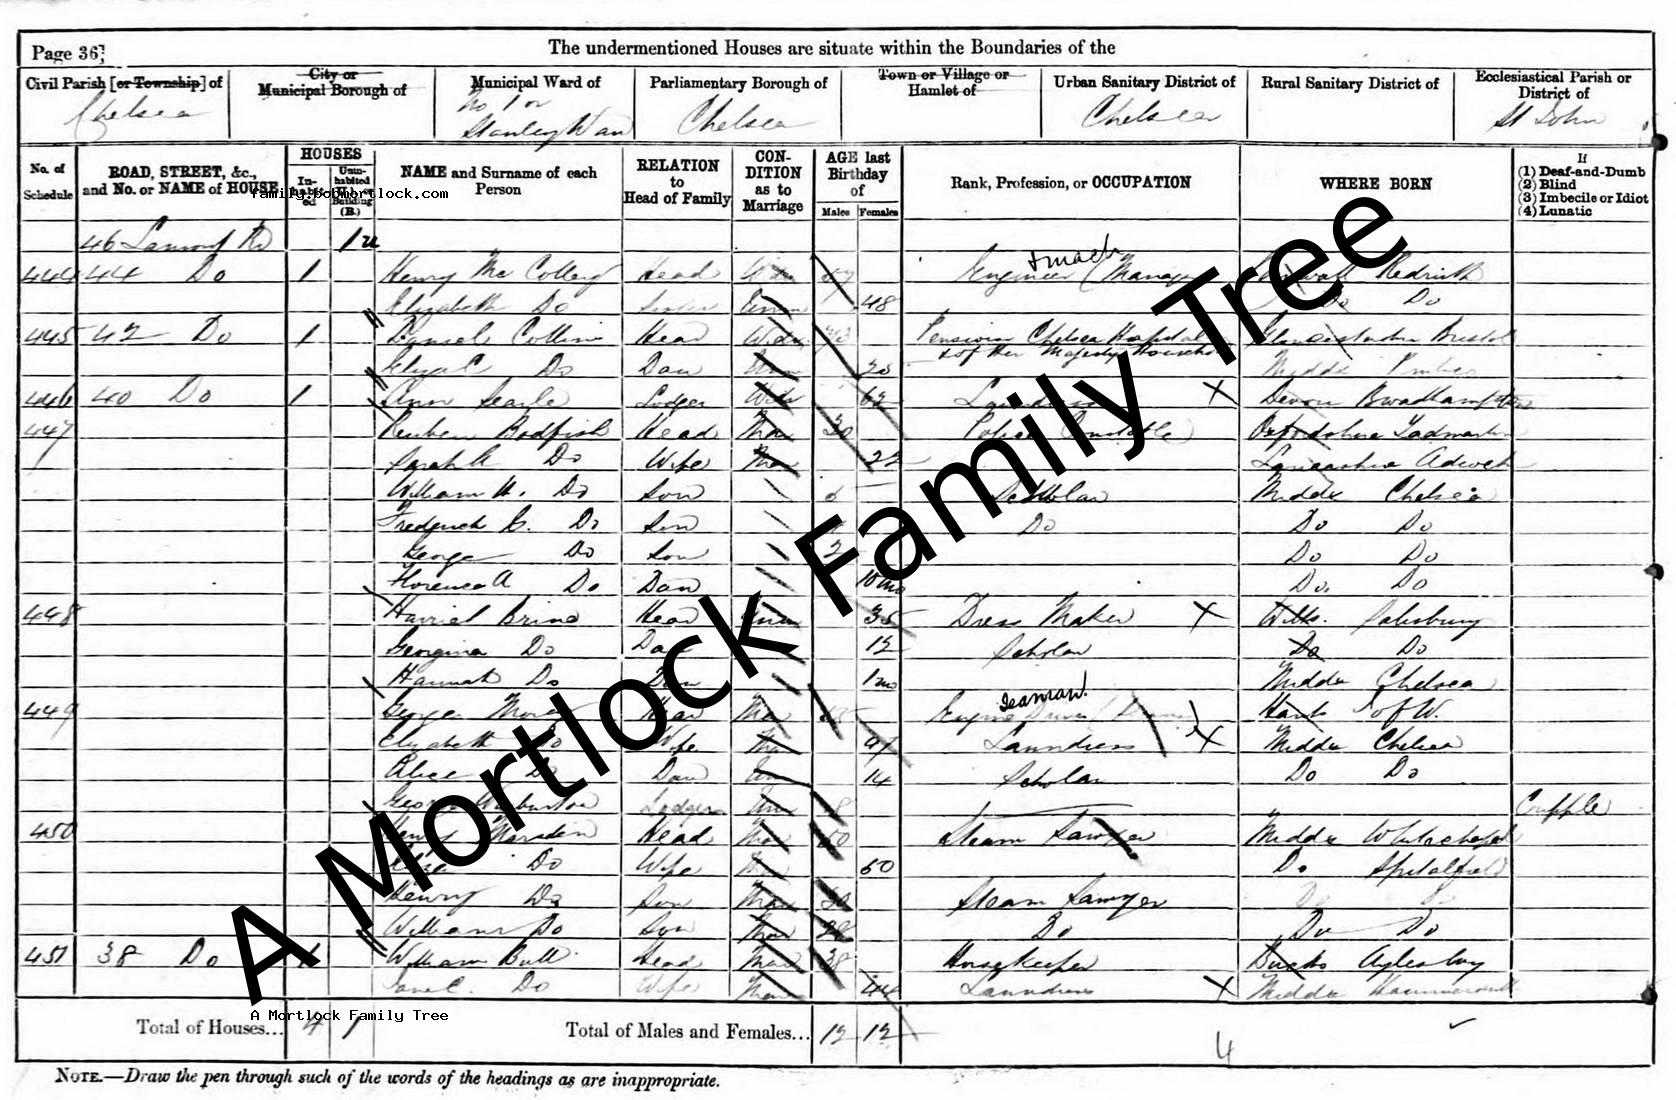 Page 36
The undermentioned Houses are situate within the Boundaries of the
Civil Parish [or Township] of
City or Municipal Borough of
Municipal Ward of
Parliamentary Borough of
Town or Village or Hamlet of
Urban Sanitary District of
Rural Sanitary District of
Ecclesiastical Parish or District of
Chelsea
No 1 or Stanley Ward
Chelsea
Chelsea
St John
No. of Schedule
ROAD, STREET, &c., and No. or NAME of HOUSE
HOUSES
In-habit-ed
Unin-habited
Building (B.)
NAME and Surname of each Person
RELATION to Head of Family
CON-DITION as to Marriage
AGE last Birthday of
Males Females
Rank, Profession, or OCCUPATION
WHERE BORN
If
(1) Deaf-and-Dumb
(2) Blind
(3) Imbecile or Idiot
(4) Lunatic
family.bobmortlock.com
46 Rd 1 u
444 44 Do 1 Henry Head Engineer (Manager Redruth
Elizabeth Do Sister 48 Do Do
445 42 Do 1 Daniel Collins Head Pension Chelsea Hospital Bristol
Eliza C Do Daur Middx
446 40 Do 1 Ann Searle Lodger 62 Laundress X Devon
447 Reuben Bodfish Head Mar 30 Police Constable Oxfordshire Tadmarton
Sarah A Do Wife Mar Lancashire
William H. Do Son 6 Scholar Middx Chelsea
Frederick Do Son Do Do Do
George Do Son 2 Do Do
Florence A Do Daur 10 mo Do. Do
448 Harriet Brind Head 35 Dress Maker X Wilts. Salisbury
Georgina Do Daur 12 Scholar Do Do
Hannah Do Daur 1 mo Middx Chelsea
449 George Head Mar Engine Driver Hants I of W.
Elizabeth Do Wife Mar Laundress X Middx Chelsea
Alice Do Daur 14 Scholar Do Do
George Warburton Lodger Cripple
450 Henry Marsden Head Mar 50 Steam Sawyer Middx Whitechapel
Do Wife 50 Do Spitalfield
Henry Do Son Mar Steam Sawyer
William Do Son Mar Do Do Do
451 38 Do 1 William Bull Head Mar 38 Housekeeper Bucks Aylesbury
Jane C. Do Wife Mar 44 Laundress X Middx Hammersmith
A Mortlock Family Tree
A Mortlock Family Tree
Total of Houses... 4 1 Total of Males and Females... 12 12
4
NOTE.—Draw the pen through such of the words of the headings as are inappropriate.